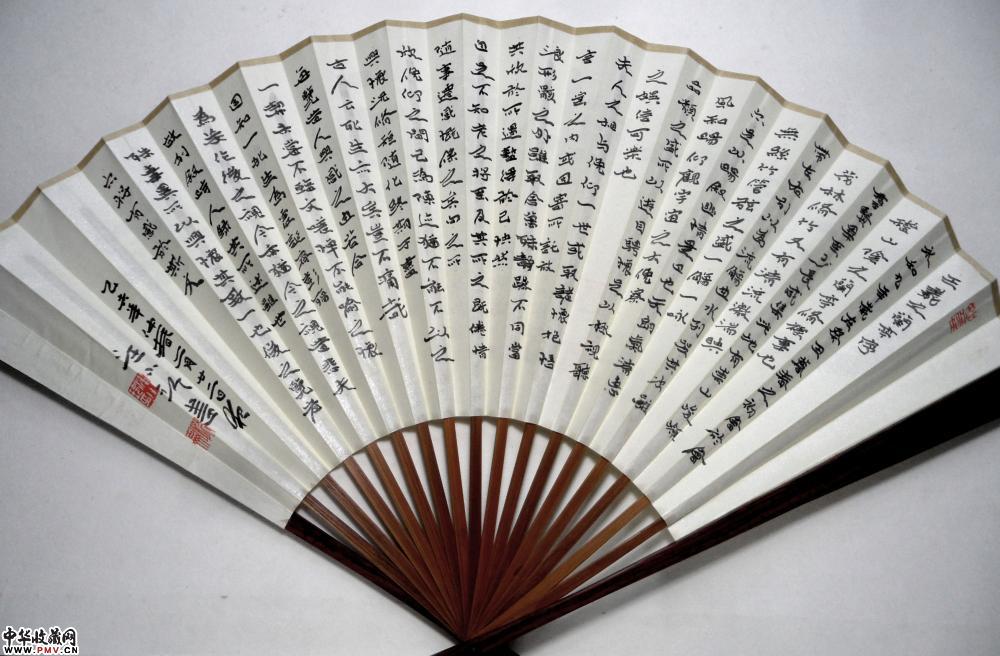 王羲之蘭亭序
永和九年歲在癸丑暮春之初會於會
稽山陰之蘭亭脩禊事也
群賢畢至少長咸集此地有崇山峻領
茂林脩竹又有清流激湍映
帶左右引以為流觴曲水列坐其次雖
無絲竹管弦之盛一觴一詠
風和暢仰觀宇宙之大俯察
品類之盛所以遊目騁懷足以極視聽
之娛信可樂也
夫人之相與俯仰一世或取諸懷抱悟
言一室之內或因寄所託放
浪形骸之外雖取舍萬殊靜躁不同當
其欣於所遇暫得於己快然
自足不知老之將至及其所之既倦情
隨事遷感慨係之矣向之所
欣俛仰之間已為陳迹猶不能不以之
興懷況脩短隨化終期於盡
古人云死生亦大矣豈不痛哉
每覽昔人興感之由若合
一契未嘗不臨文嗟悼不能喻之於懷
固知一死生為虛誕齊彭殤
為妄作後之視今亦猶今之視昔悲夫
故列敘時人錄其所述雖世
殊事異所以興懷其致一也後之覽者
亦將有感於斯文
中华收藏网
WWW.PMV.CN